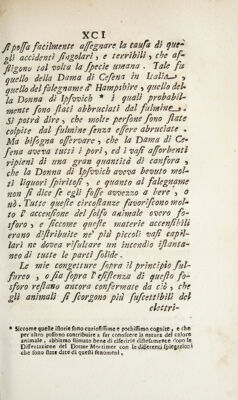 XCI
si possa facilmente assegnare la causa di que-
gli accidenti singolari, e terribili, che af-
fliggono tal volta la specie umana. Tale fu
quello della Dama di Cesena in Italia,
quello del falegname d' Hampshire, quello del-
la Donna di Ipsvvich * i quali probabil-
mente sono stati abbruciati dal fulmine.
Si potrà dire, che molte persone sono state
colpite dal fulmine senza essere abruciate.
Ma bisogna osservare, che la Dama di Ce-
sena aveva tutti i pori, ed i vasi assorbenti
ripieni di una gran quantità di canfora,
che la Donna di Ipsvvich aveva bevuto mol-
ti liquori spiritosi, e quanto al falegname
non si dice se egli fosse avvezzo a bere, o
nò. Tutte queste circostanze favoriscono mol-
to l' accensione del solfo animale overo fo-
sforo, e siccome queste materie accensibili
erano distribuite ne' più piccoli vasi capil-
lari ne doveva risultare un incendio istanta-
neo di tutte le parti solide.
Le mie congetture sopra il principio sul-
fureo, osia sopra l' esistenza di questo fo-
sforo restano ancora confermate da ciò, che
gli animali si scorgono più suscettibili del
elettri-
* Siccome quelle istorie sono curiosissime e pochissimo cognite, e che
per altro possono contribuire a far conoscere la natura del calore
animale, abbiamo stimato bene di riferirle distesamente dopo la
Dissertazione del Dottor Mortimer con le differenti spiegazioni
che sono state date di questi fenomeni.